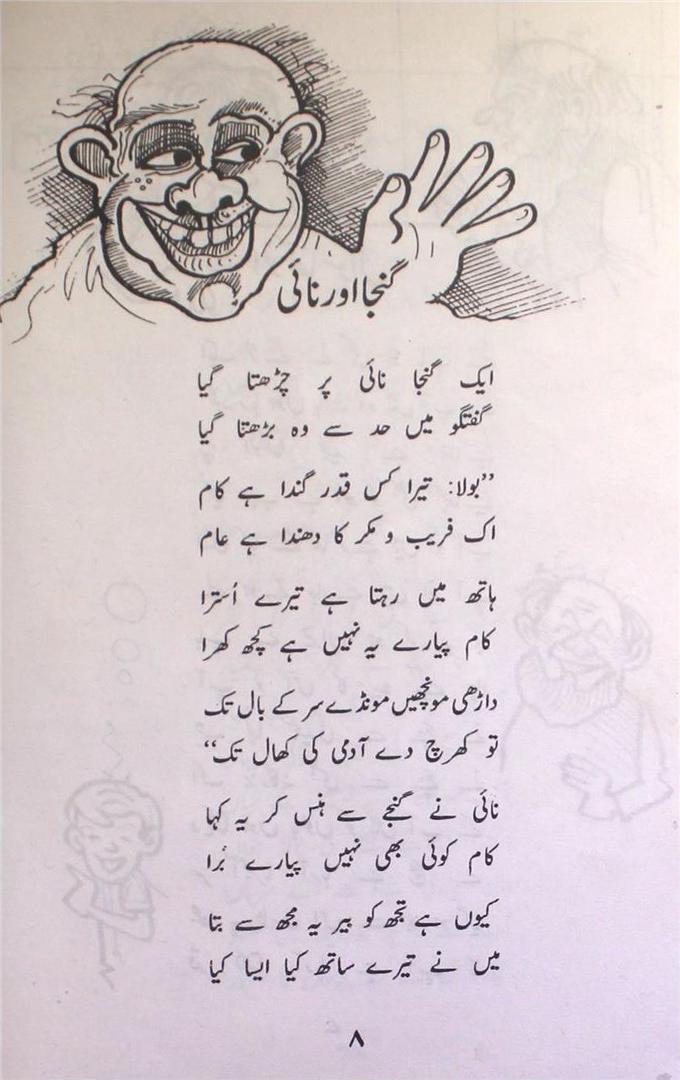 گنجا اور نائی
ایک گنجا نائی پر چڑھتا گیا
گفتگو میں حد سے وہ بڑھتا گیا
”بولا: تیرا کس قدر گندا ہے کام
اک فریب و مکر کا دھندا ہے عام
ہاتھ میں رہتا ہے تیرے اُسترا
کام پیارے یہ نہیں ہے کچھ کھرا
داڑھی مونچھیں مونڈے سر کے بال تک
تو کھرچ دے آدمی کی کھال تک“
نائی نے گنجے سے ہنس کر یہ کہا
کام کوئی بھی نہیں پیارے بُرا
کیوں ہے تجھ کو بیر یہ مجھ سے بتا
میں نے تیرے ساتھ کیا ایسا کیا
۸